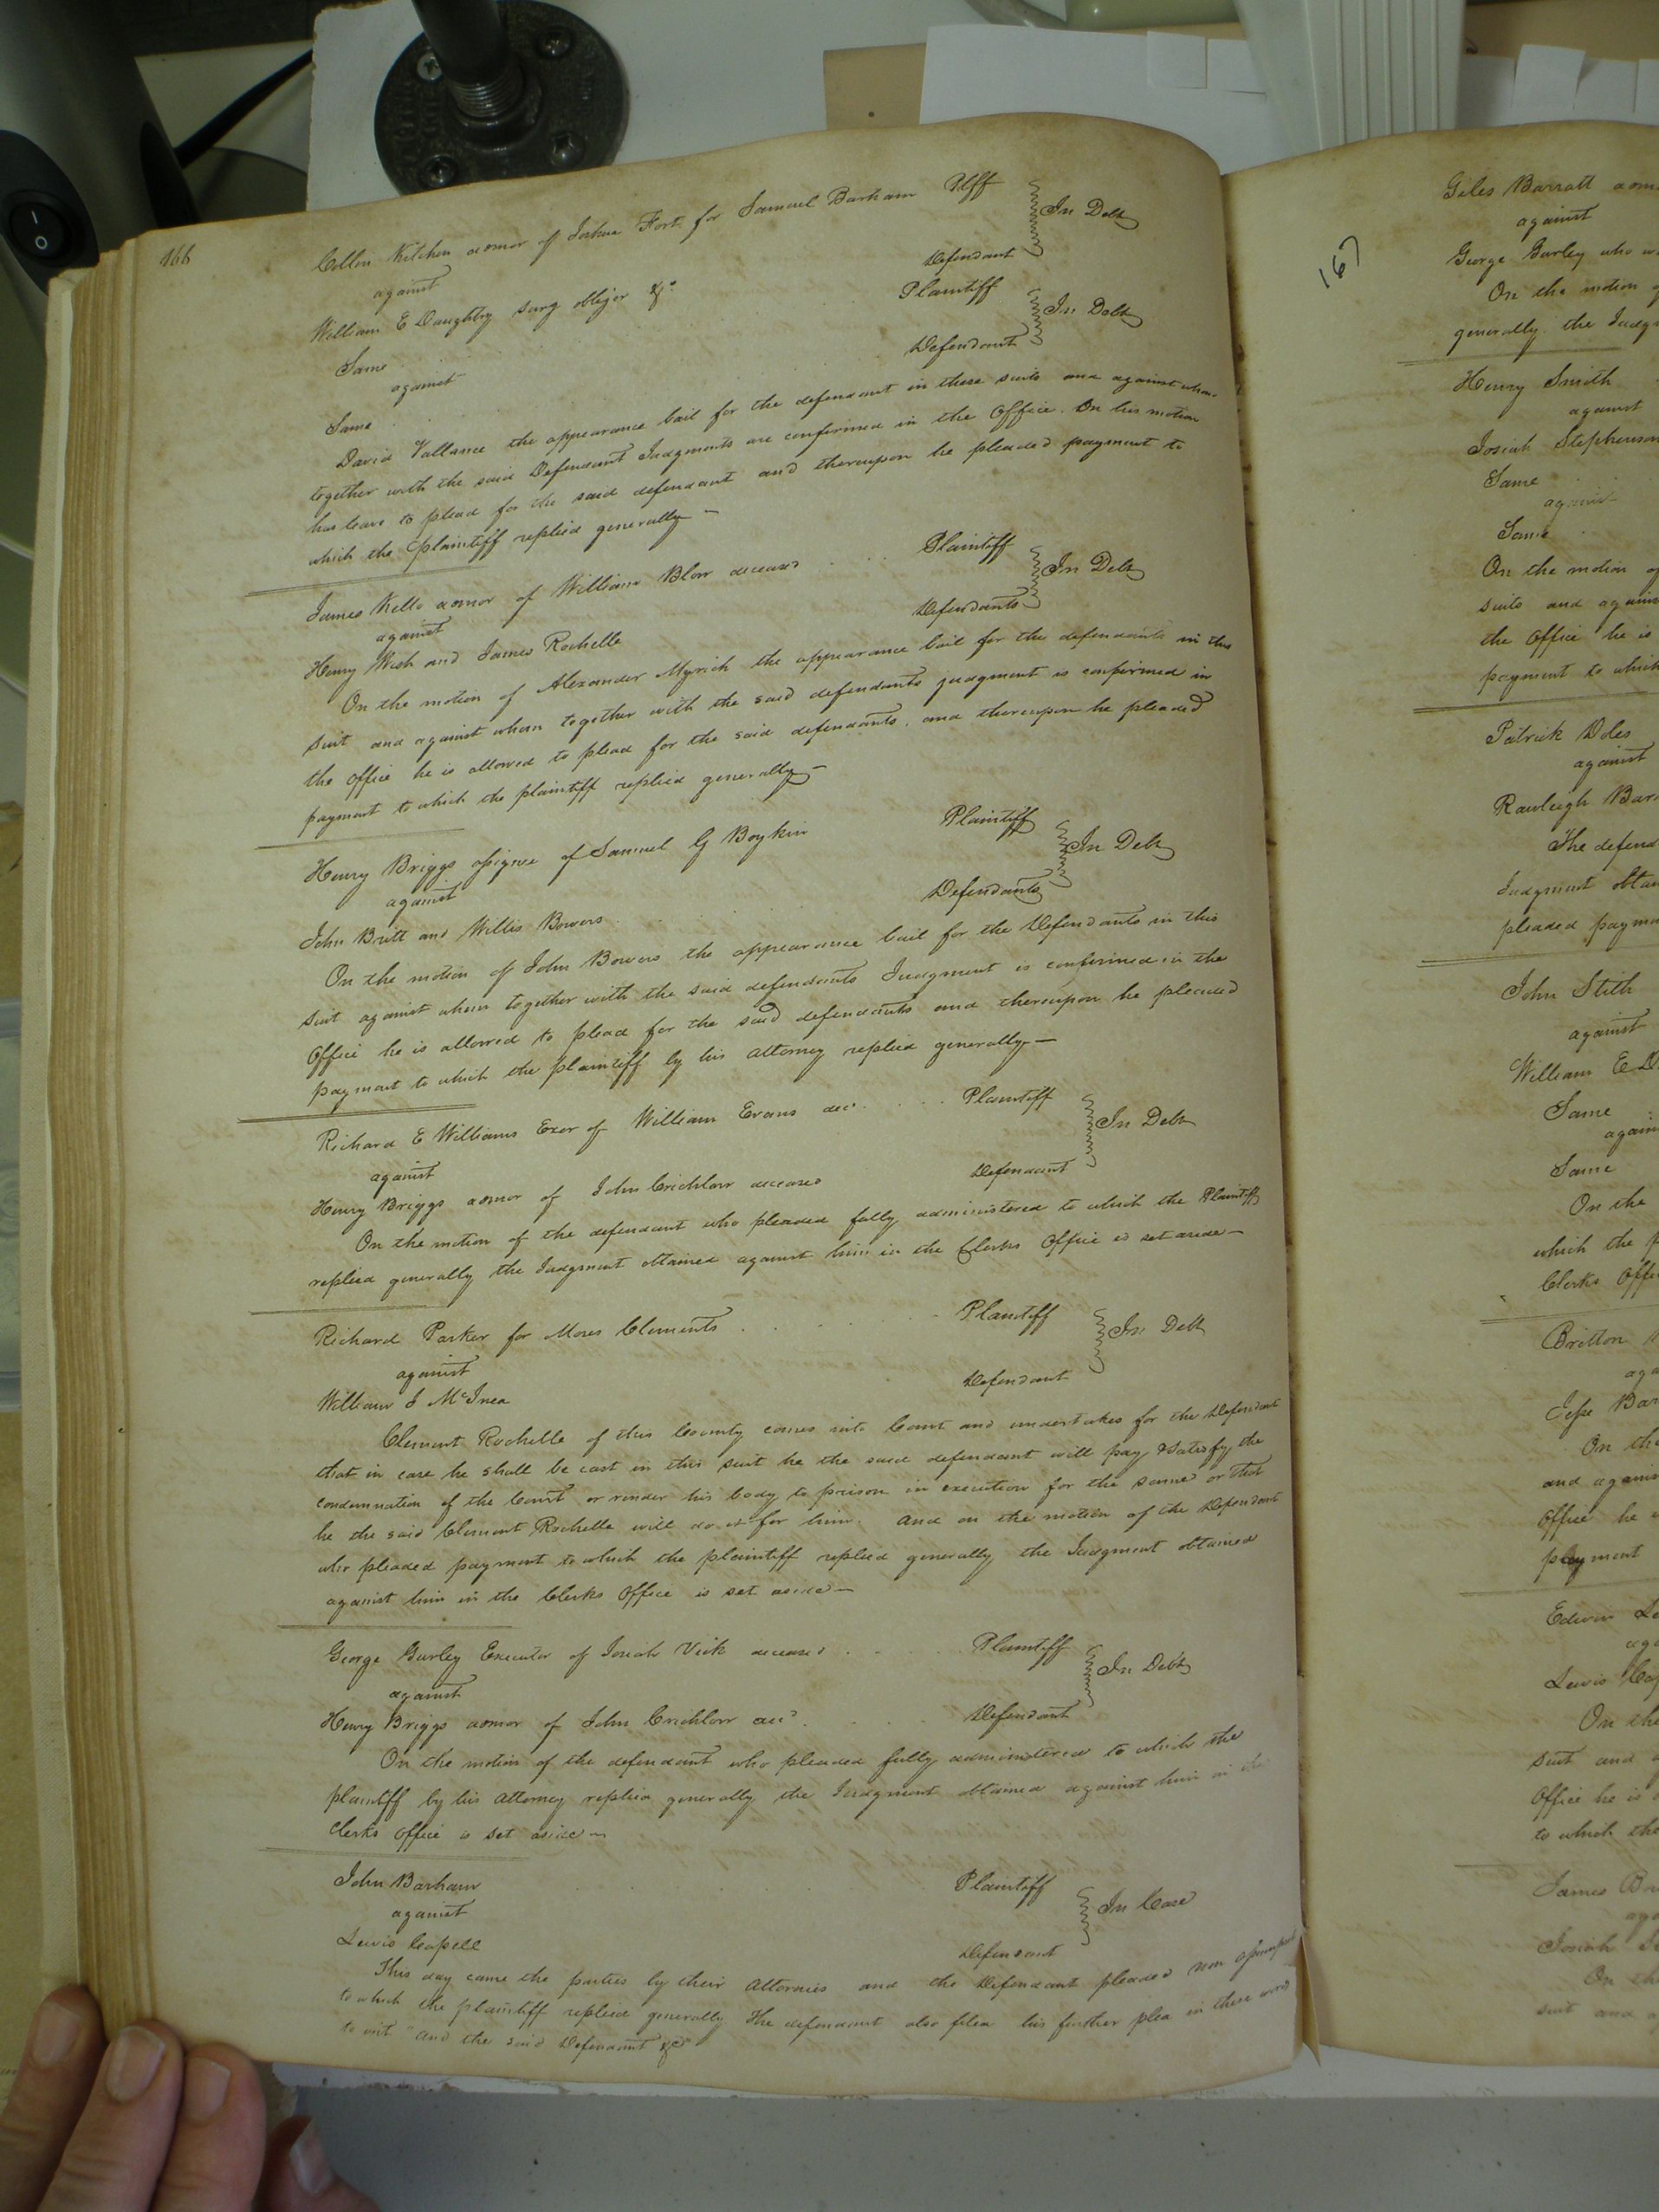 166
Collin Kitchen admor of Joshua Fort for Samuel Barham Plff
against
In Debt
William E Daughtry surg obligor &c.
Defendant
Same
Plaintiff
against
In Debt
Same
Defendant
David Vallance the appearance bail for the defendant in these suits and against whom
together with the said Defendant Judgments are confirmed in the Office. On his motion
has leave to plead for the said defendant and thereupon he pleaded payment to
which the plaintiff replied generally –
James Kello admor of William Blow deceased Plaintiff
against
In Debt
Henry and James Rochelle
Defendants
On the motion of Alexander Myrick the appearance bail for the defendants in this
suit and against whom together with the said defendants judgment is confirmed in
the office he is allowed to plead for the said defendants, and thereupon he pleaded
payment to which the plaintiff replied generally –
Henry Briggs assignee of Samuel G Boykin Plaintiff
against
In Debt
John Britt and Willis Bowers
Defendants
On the motion of John Bowers the appearance bail for the Defendants in this
suit against whom together with the said defendants Judgment is confirmed in the
Office he is allowed to plead for the said defendants and thereupon he pleaded
payment to which the plaintiff by his attorney replied generally –
Richard E Williams Exor of William Evans decd. Plaintiff
against
In Debt
Henry Briggs admor of John Crichlow deceased
Defendant
On the motion of the defendant who pleaded fully administered to which the Plaintiff
replied generally the Judgment obtained against him in the Clerks Office is set aside –
Richard Parker for Moses Clements Plaintiff
against
In Debt
William J McInea
Defendant
Clement Rochelle of this County comes into Court and undertakes for the Defendant
that in case he shall be cast in this suit he the said defendant will pay & satisfy the
condemnation of the Court or render his body to prison in execution for the same or that
he the said Clement Rochelle will do it for him. And on the motion of the Defendant
who pleaded payment to which the plaintiff replied generally the Judgment obtained
against him in the Clerks Office is set aside –
George Gurley Executor of Josiah Vick deceased Plaintiff
against
In Debt
Henry Briggs admor of John Crichlow decd.
Defendant
On the motion of the defendant who pleaded fully administered to which the
plaintiff by his attorney replied generally the Judgment obtained against him in the
Clerks office is set aside –
John Barham Plaintiff
against
In Case
Lewis Capell
Defendant
This day came the parties by their Attornies and the Defendant pleaded non assumpsit
to which the plaintiff replied generally The defendant also filed his further plea in these words
to wit "and the said Defendant &c"
167
Giles Barratt
against
George Gurley who
On the motion
generally the
Henry Smith
against
Josiah Stephenson
Same
against
Same
On the motion of
suits and
the Office he is
payment to which
Patrick Doles
against
Rawleigh
The
Judgment
pleaded
John Stith
against
William E
Same
Same
On the
which the
Clerks
Britton
Jesse
On
and
Office he
payment
Edwin
Lewis
On the
suit and
Office he is
to which the
James
Josiah
On
suit and